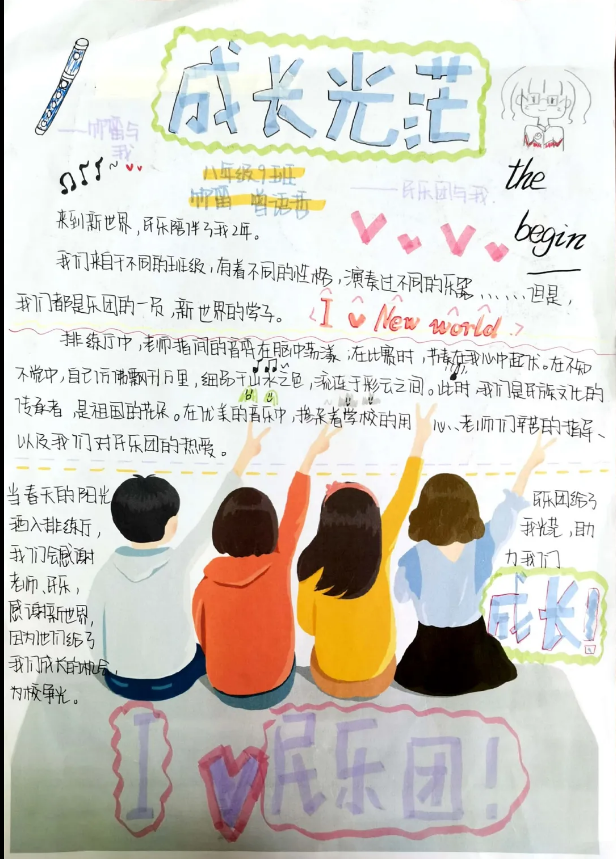 成长光茫
——竹笛与我
八年级9班
竹笛 曾语哲
——民乐团与我.
the
begin
来到新世界,民乐陪伴了我2年。
我们来自于不同的班级,有着不同的性格,演奏过不同的乐器......但是,
我们都是乐团的一员,新世界的学子。
I New world
排练厅中,老师指间的音符在脑中荡漾;在比赛时,节奏在我心中起伏。在不知
不觉中,自己仿佛飘升万里,细品于山水之色,流连于彩云之间。此时,我们是民族文化的
传承者,是祖国的花朵。在优美的音乐中,掺杂着学校的用心、老师们辛苦的指导、
以及我们对民乐团的热爱。
当春天的阳光
洒入排练厅,
我们会感谢
老师、民乐,
感谢新世界,
因为他们给了
我们成长的机会,
为校争光。
民乐团给了
我光茫,助
力我们
成长!
I 民乐团!